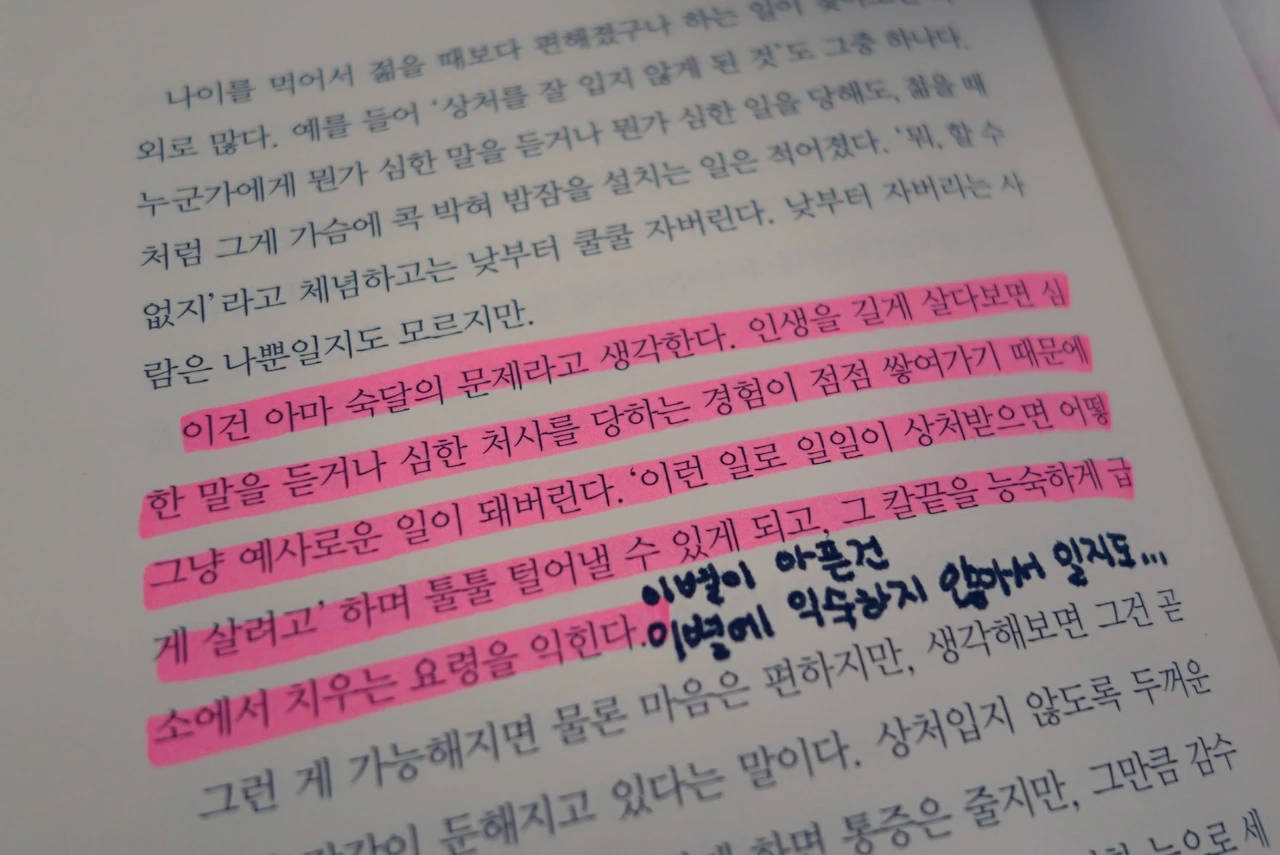 나이를 먹어서 젊을 때보다 편해졌구나 하는 일이
외로 많다. 예를 들어 ‘상처를 잘 입지 않게 된 것’도 그중 하나다.
누군가에게 뭔가 심한 말을 듣거나 뭔가 심한 일을 당해도, 젊을 때
처럼 그게 가슴에 콕 박혀 밤잠을 설치는 일은 적어졌다. ‘뭐, 할 수
없지’라고 체념하고는 낮부터 쿨쿨 자버린다. 낮부터 자버리는 사
람은 나뿐일지도 모르지만.
이건 아마 숙달의 문제라고 생각한다. 인생을 길게 살다보면 심
한 말을 듣거나 심한 처사를 당하는 경험이 점점 쌓여가기 때문에
그냥 예사로운 일이 돼버린다. ‘이런 일로 일일이 상처받으면 어떻
게 살려고’ 하며 툴툴 털어낼 수 있게 되고, 그 칼끝을 능숙하게 급
소에서 치우는 요령을 익힌다.
이별이 아픈건
이별에 익숙하지 않아서 일지도...
그런 게 가능해지면 물론 마음은 편하지만, 생각해보면 그건 곧
둔해지고 있다는 말이다. 상처입지 않도록 두꺼운
하면 통증은 줄지만, 그만큼 감수
눈으로 세